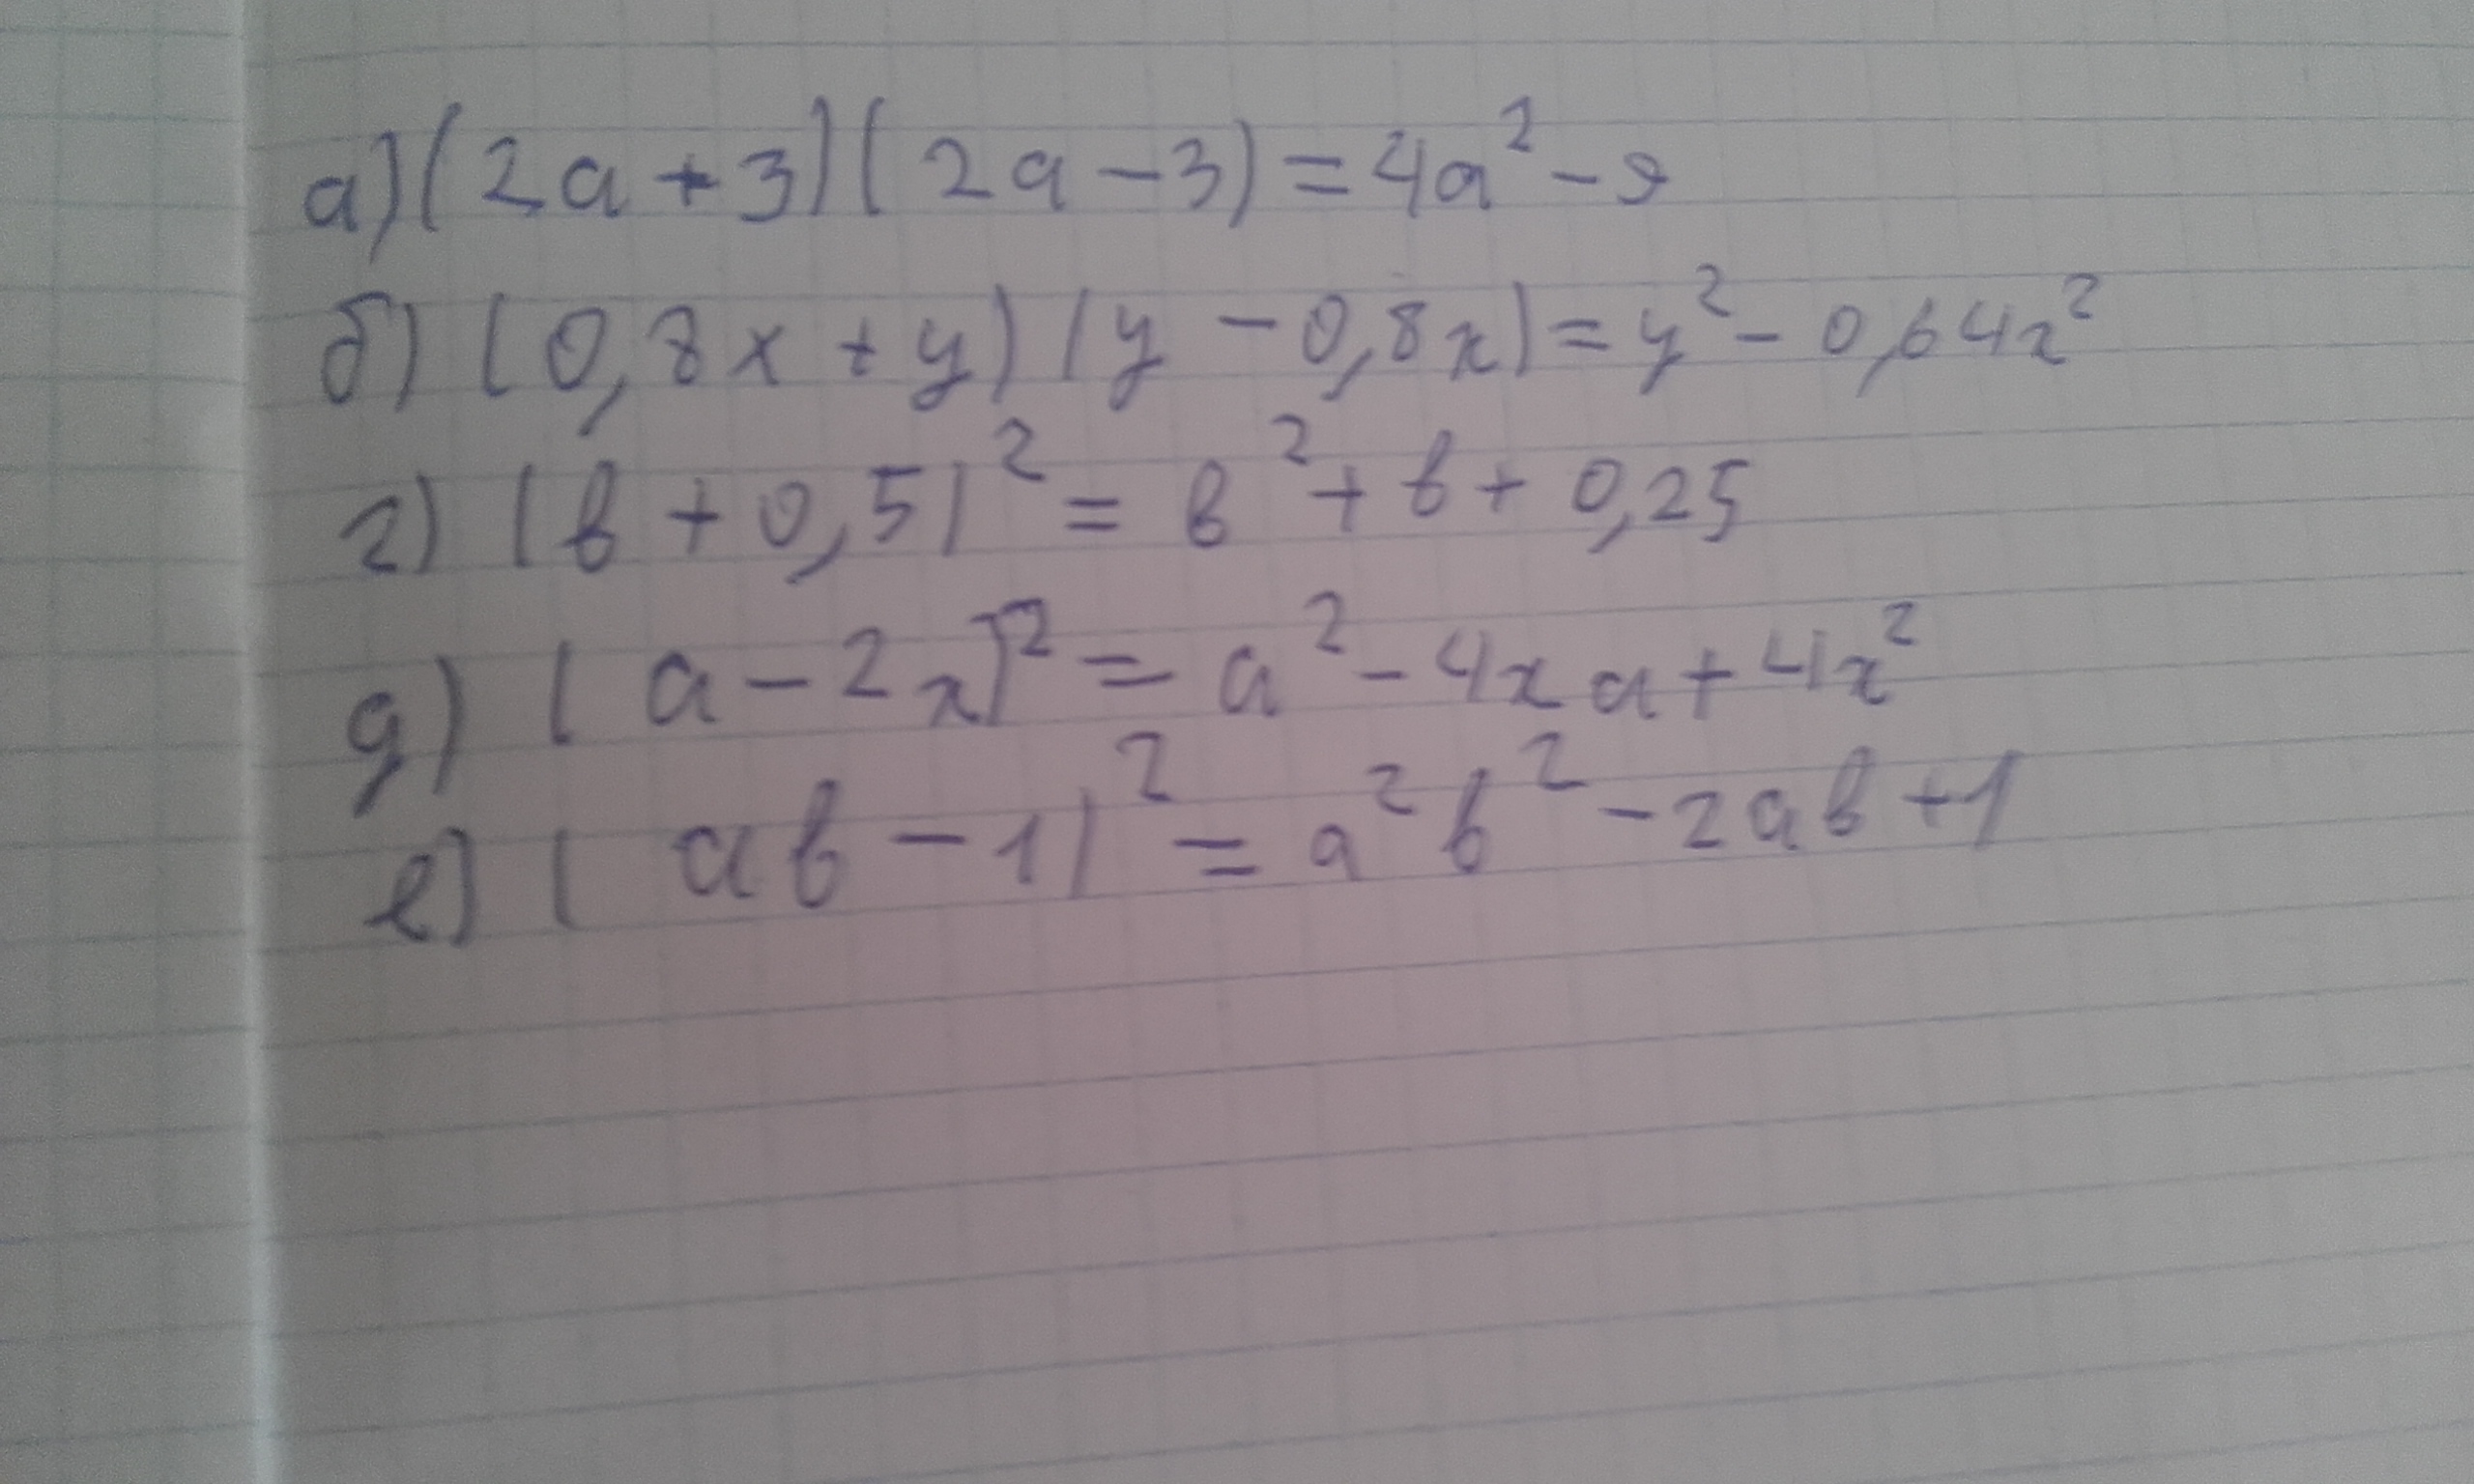 а) (2a + 3) (2a - 3) = 4a² - 9
б) (0,8x + y) (y - 0,8x) = y² - 0,64x²
г) (b + 0,5)² = b² + b + 0,25
д) (a - 2x)² = a² - 4xa + 4x²
е) (ab - 1)² = a²b² - 2ab + 1